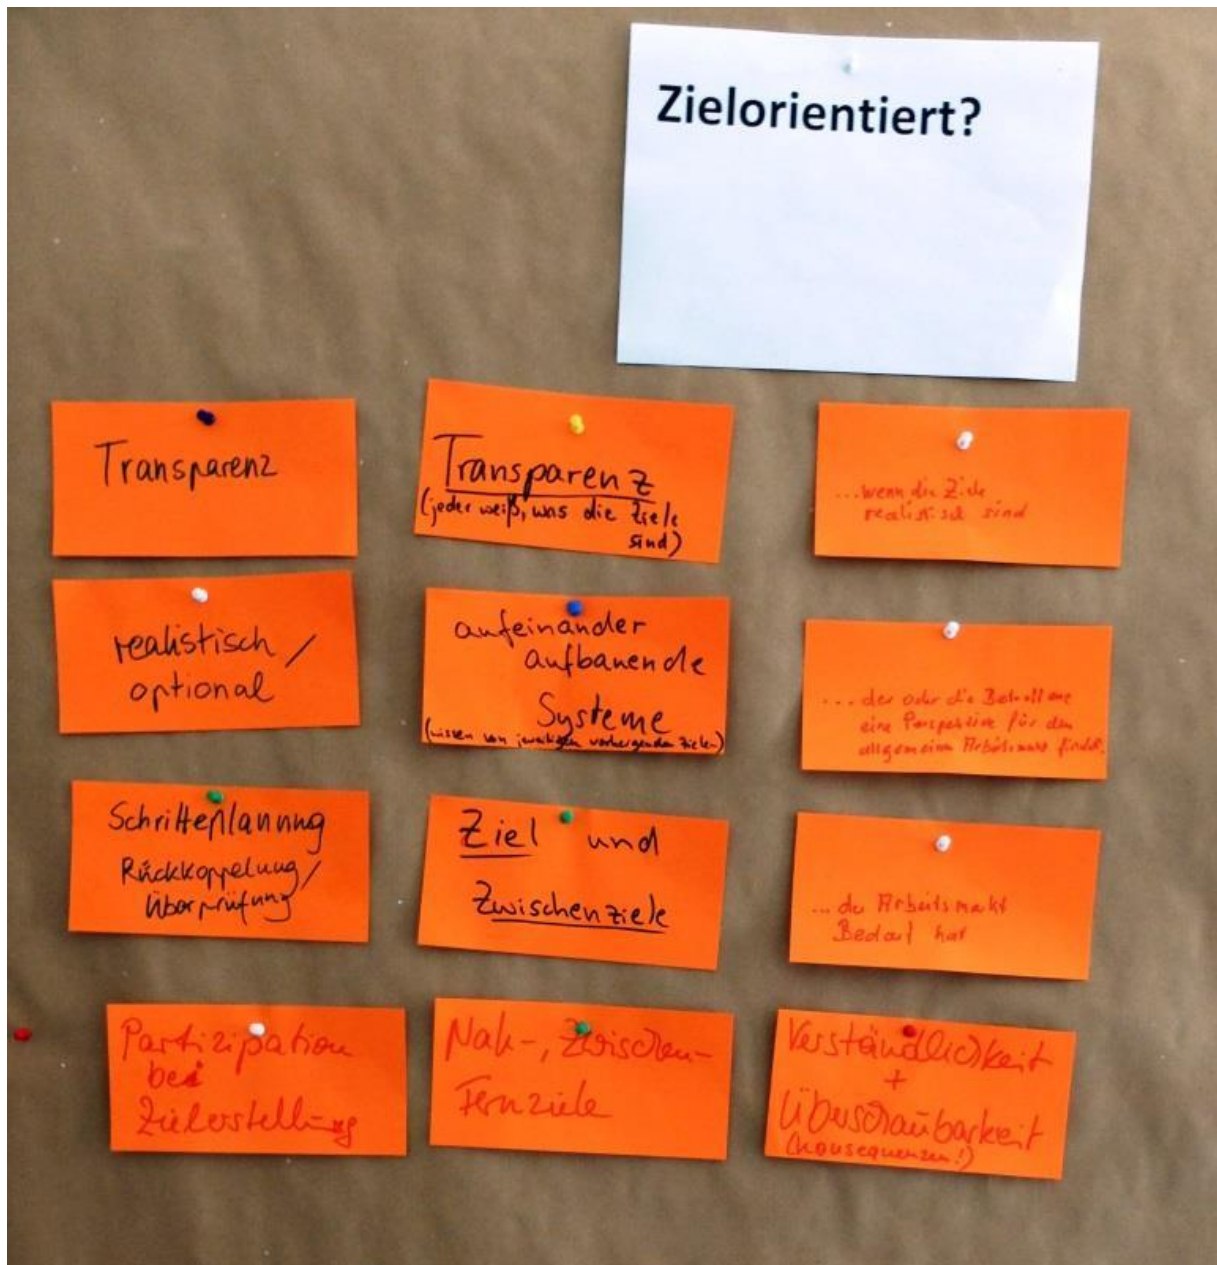 Zielorientiert?
Transparenz
Transparenz
(jeder weiß, was die Ziele
sind)
...wenn die Ziele
realistisch sind
realistisch /
optional
aufeinander
aufbauende
Systeme
(wissen von jeweiligen vorhergenden Zielen)
...der oder die Betroffene
eine Perspektive für den
allgemeinen Arbeitsmarkt findet.
Schritteplannung
Rückkoppelung/
Überprüfung
Ziel und
Zwischenziele
...der Arbeitsmarkt
Bedarf hat
Partizipation
bei
Zielerstellung
Nah-, Zwischen-
Fernziele
Verständlichkeit
+
Überschaubarkeit
(Konsequenzen!)